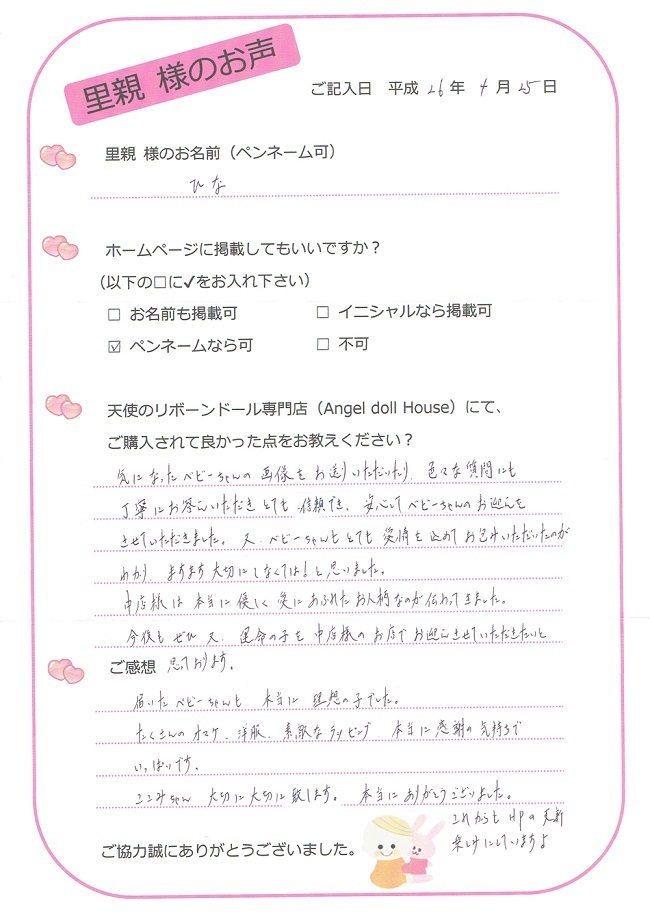 里親 様のお声
ご記入日 平成 26 年 4 月 25 日
里親 様のお名前（ペンネーム可）
ひな
ホームページに掲載してもいいですか？
（以下の□に✓をお入れ下さい）
□ お名前も掲載可 □ イニシャルなら掲載可
☑ ペンネームなら可 □ 不可
天使のリボーンドール専門店（Angel doll House）にて、
ご購入されて良かった点をお教えください？
気になったベビーちゃんの画像をお送りいただいたり、色々な質問にも
丁寧にお答えいただきとても信頼でき、安心してベビーちゃんのお迎えを
させていただきました。又、ベビーちゃんもとても愛情を込めてお包みいただいたのが
わかり、ますます大切にしなくては！と思いました。
中店様は本当に優しく愛にあふれたお人柄なのが伝わってきました。
今後もぜひ又、運命の子を中店様のお店でお迎えさせていただきたいと
ご感想 思っております。
届いたベビーちゃんも 本当に 理想の子でした。
たくさんのオマケ、洋服、素敵なラッピング 本当に感謝の気持ちで
いっぱいです。
ここみちゃん 大切に大切に致します。本当にありがとうございました。
これからもHPの更新
楽しみにしていますよ
ご協力誠にありがとうございました。